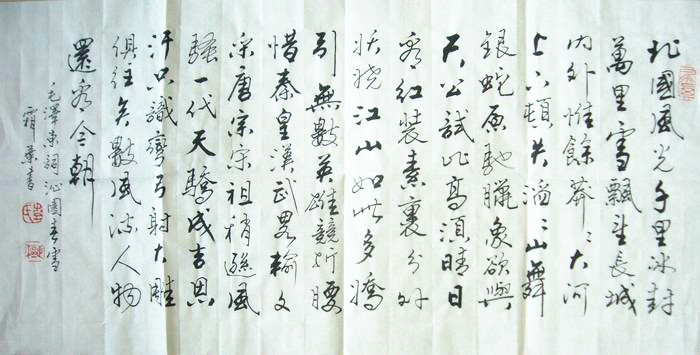 北國風光千里冰封
萬里雪飄望長城
内外惟餘莽〻大河
上下頓失滔〻山舞
銀蛇原馳臘象欲與
天公試比高須晴日
看紅裝素裹分外
妖嬈江山如此多嬌
引無數英雄競折腰
惜秦皇漢武畧輸文
采唐宗宋祖稍遜風
騷一代天驕成吉思
汗只識彎弓射大雕
俱往矣數風流人物
還看今朝
毛澤東詞沁園春雪
霜葉書